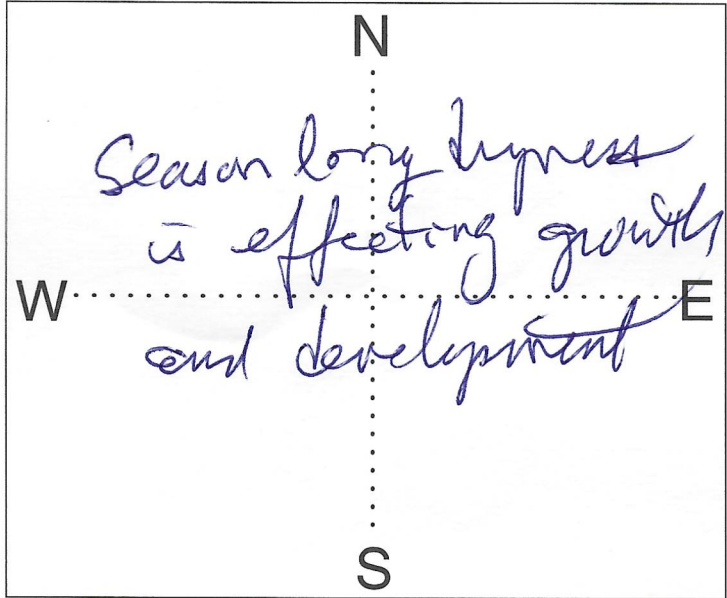 N
Season long dryness
is effecting growth
W E
and development
S